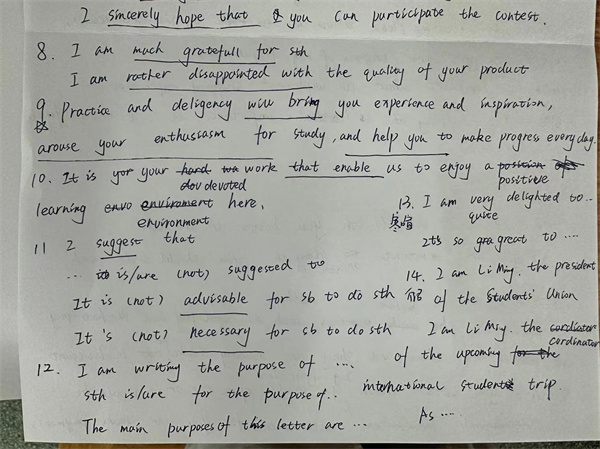 I sincerely hope that you can participate the contest.
8. I am much gratefull for sth
I am rather disappointed with the quality of your product
9. Practice and deligency will bring you experience and inspiration,
arouse your enthussasm for study, and help you to make progress everyday.
10. It is yor your hard wo work that enable us to enjoy a position
dov devoted positive
learning envo enviroment here.
environment
11 I suggest that
... is/are (not) suggested to
It is (not) advisable for sb to do sth
It's (not) necessary for sb to do sth
12. I am writing the purpose of ...
sth is/are for the purpose of..
The main purposes of this letter are ...
13. I am very delighted to..
寒暄 quite
It's so gra great to ....
14. I am Li Ming. the president
介绍 of the Students' Union
I am Li Ming. the cordiator
cordinator
of the upcoming for the
international student trip.
As ....